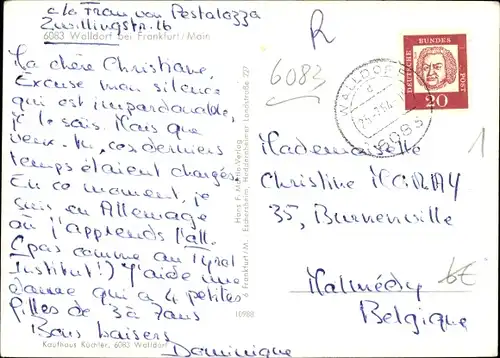 c/o Frau von Pestalozza
Zwillingstr. 16
6083 Walldorf bei Frankfurt/Main
La chère Christiane,
Excuse mon silence
qui est impardonable,
je le sais. Mais que
veux-tu, ces derniers
temps étaient chargés.
En ce moment, je
suis en Allemagne
où j'apprends l'all.
(pas comme au Tyrol
Institut!) J'aide une
dame qui a 4 petites
filles de 3 à 7 ans
Bons baisers
Dominique
Kaufhaus Küchler, 6083 Walldorf
Hans F. Verlag
6 Frankfurt/M. Eschersheim, Heddernheimer Landstraße 227
10988
R
6083
DEUTSCHE BUNDESPOST
20
WALLDORF
6083
Mademoiselle
Christine
35, Burnenville
Malmédy
Belgique
1
6€